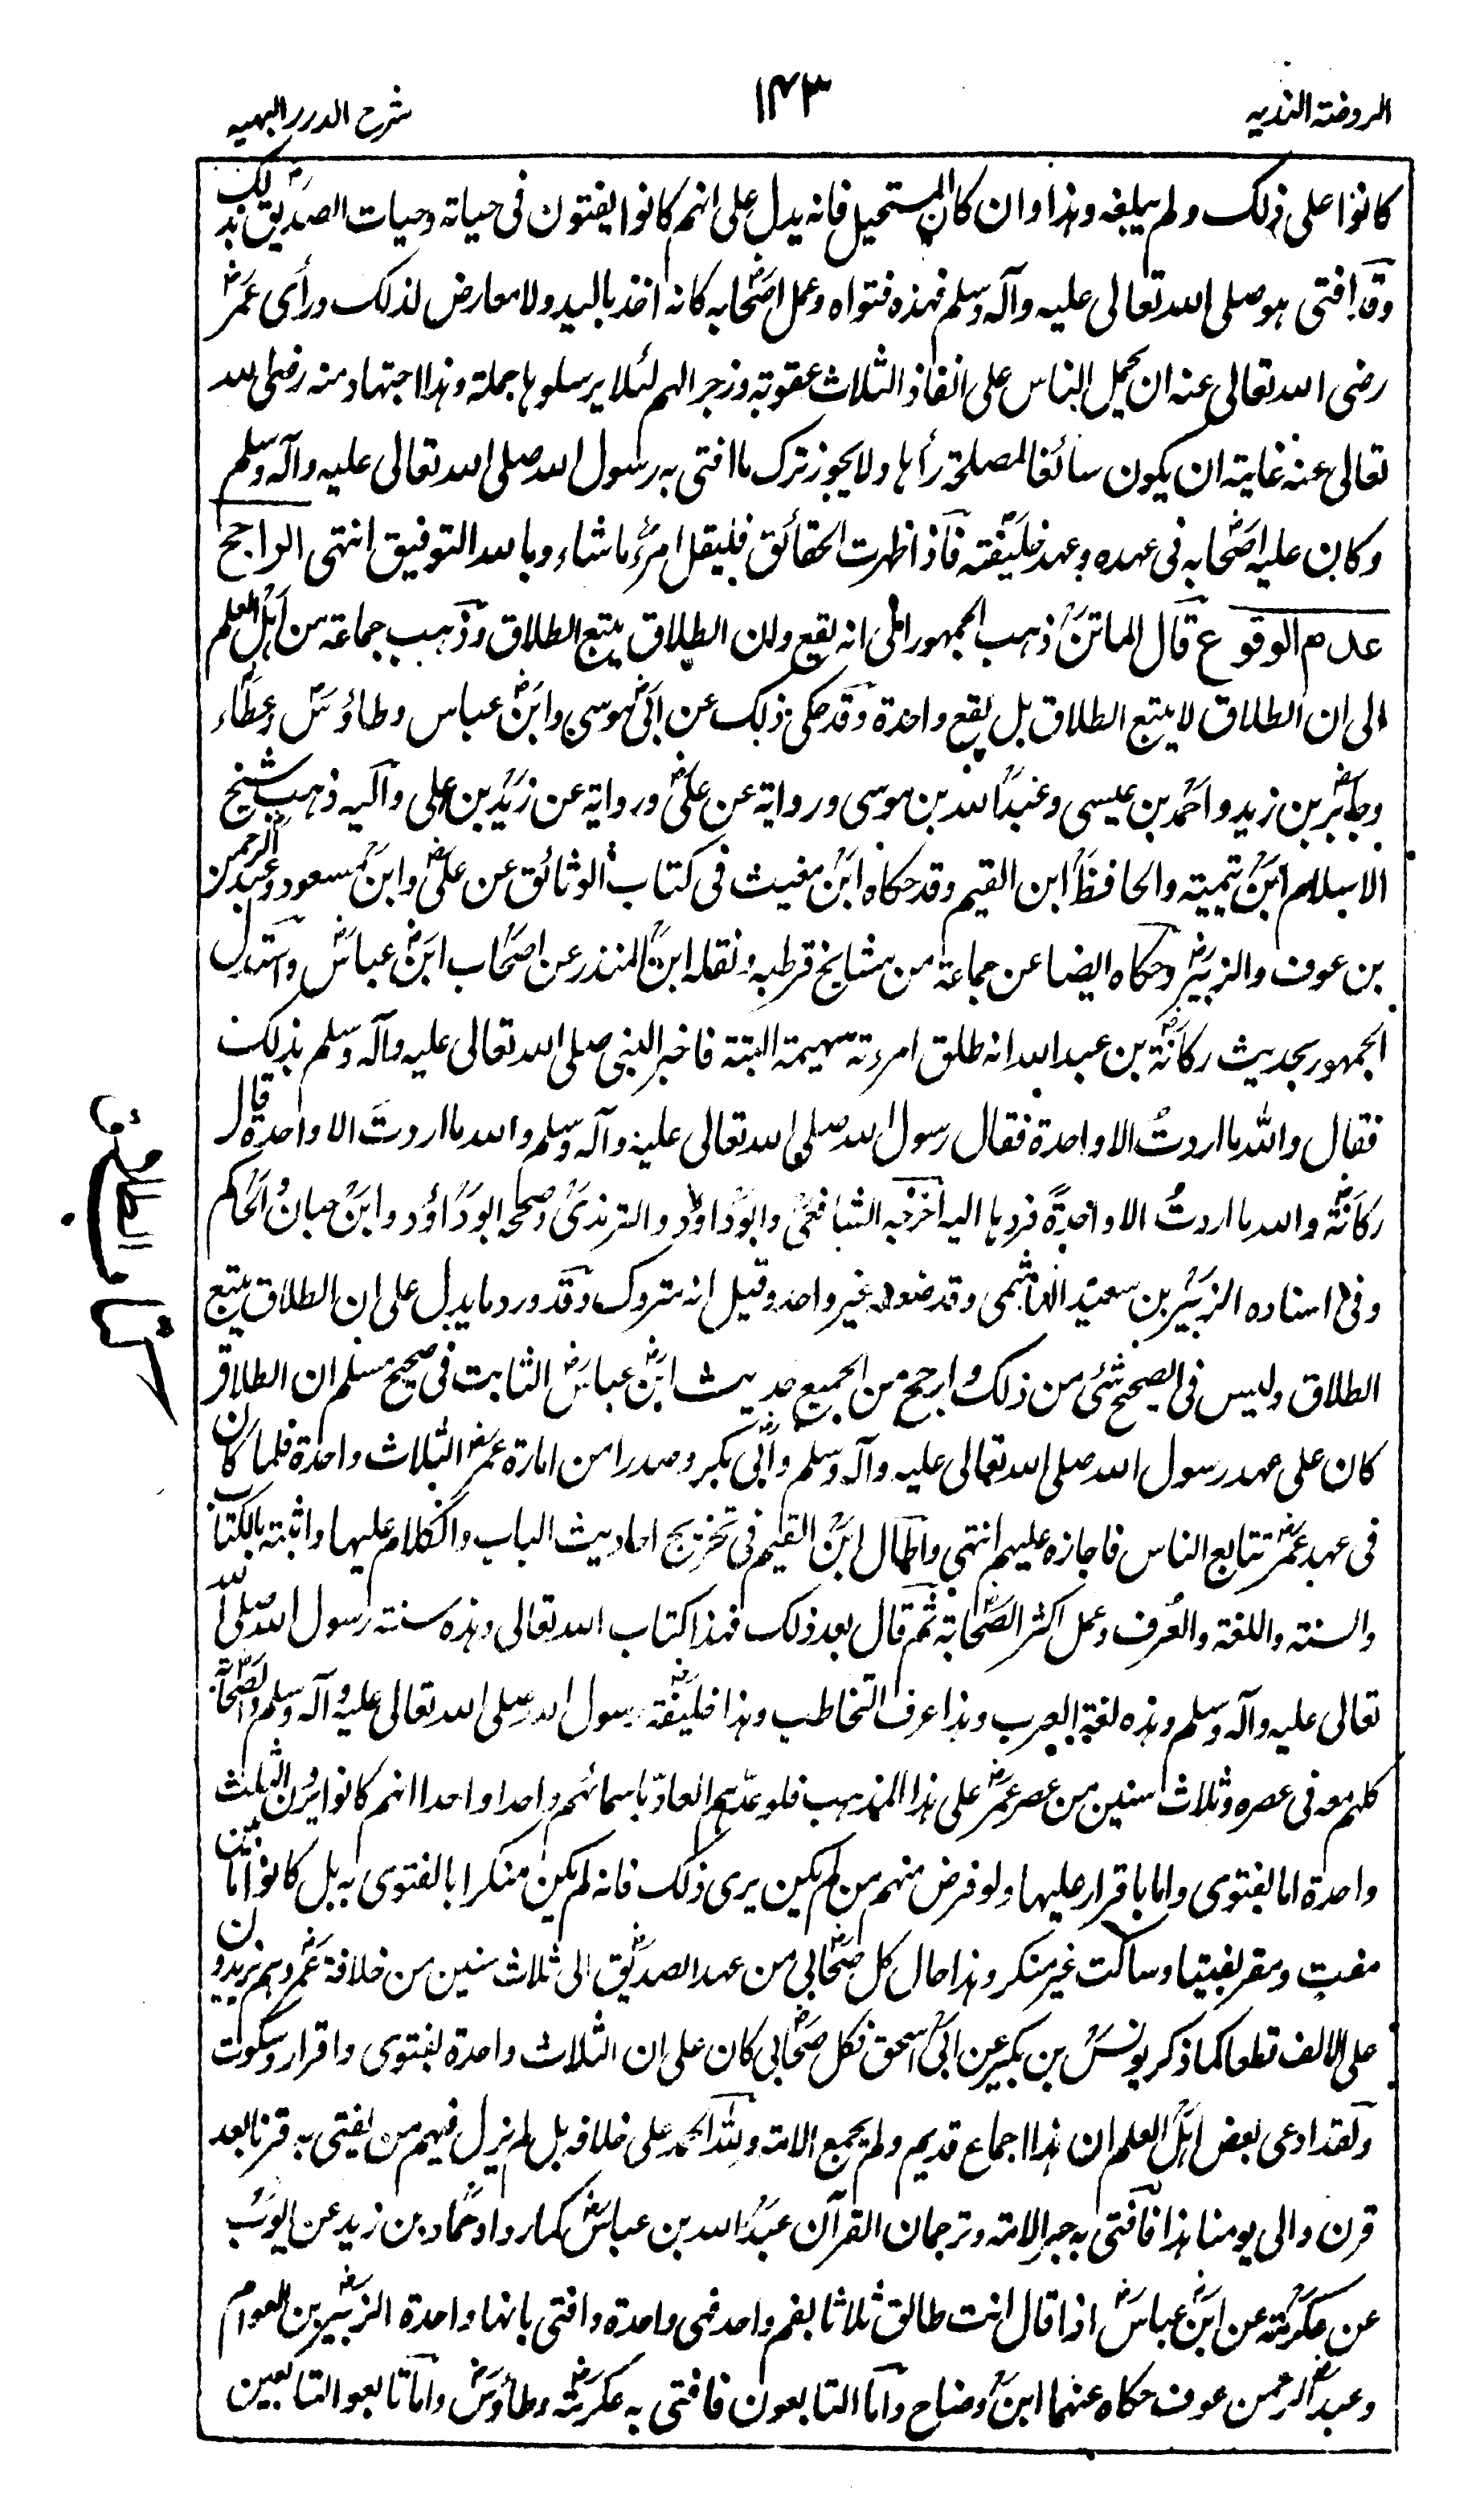 الروضة الندية
١٤٣
شرح الدرر البهية
كانوا على ذلك ولم يبلغه وهذا وان كان المستحيل فانه يدل على انهم كانوا يفتون فى حياته وحيات الصديق بذلك
وقد افتى هو صلى الله تعالى عليه وآله وسلم فهذه فتواه وعمل اصحابه كانه اخذ باليد ولا معارض لذلك ورأى عمر
رضى الله تعالى عنه ان يحمل الناس على انفاذ الثلاث عقوبة وزجرا لهم لئلا يرسلوها جملة وهذا اجتهاد منه رضى الله
تعالى عنه غايته ان يكون سائغا لمصلحة رأها ولا يجوز ترك ما افتى به رسول الله صلى الله تعالى عليه وآله وسلم
وكان عليه اصحابه فى عهده وعهد خليفته فاذا ظهرت الحقائق فليقل امرؤ ما شاء وبالله التوفيق انتهى الراجح
عدم الوقوع قال الماتن ذهب الجمهور الى انه يقع وان الطلاق يتبع الطلاق وذهب جماعة من اهل العلم
الى ان الطلاق لا يتبع الطلاق بل يقع واحدة وقد حكى ذلك عن ابى موسى وابن عباس وطاؤس وعطاء
وجابر بن زيد واحمد بن عيسى وعبد الله بن موسى ورواية عن على ورواية عن زيد بن على واليه ذهب شيخ
الاسلام ابن تيمية والحافظ ابن القيم وقد حكاه ابن مغيث فى كتاب الوثائق عن على وابن مسعود وعبد الرحمن
بن عوف والزبير وحكاه ايضا عن جماعة من مشايخ قرطبه ونقله ابن المنذر عن اصحاب ابن عباس واستدل
الجمهور بحديث ركانة بن عبد الله انه طلق امرءته سهيمة البتة فاخبر النبى صلى الله تعالى عليه وآله وسلم بذلك
فقال والله ما اردتُ الا واحدة فقال رسول الله صلى الله تعالى عليه وآله وسلم والله ما اردتَ الا واحدة قال
ركانة والله ما اردتُ الا واحدةً فردها اليه اخرجه الشافعى وابو داؤد والترمذى وصححه ابو داؤد وابن حبان والحاكم
وفى اسناده الزبير بن سعيد الهاشمى وقد ضعفه غير واحد وقيل انه متروك وقد ورد ما يدل على ان الطلاق يتبع
الطلاق وليس فى الصحيح شئ من ذلك وارجح من الجميع حديث ابن عباس الثابت فى صحيح مسلم ان الطلاق
كان على عهد رسول الله صلى الله تعالى عليه وآله وسلم وابى بكر وصدرا من امارة عمر الثلاث واحدة فلما كان
فى عهد عمر تتابع الناس فاجازه عليهم انتهى واطال ابن القيم فى تخريج احاديث الباب والكلام عليها واثبته بالكتاب
والسنة واللغة والعُرف وعمل اكثر الصحابة ثم قال بعد ذلك فهذا كتاب الله تعالى وهذه سنة رسول الله صلى الله
تعالى عليه وآله وسلم وهذه لغة العرب وهذا عرف التخاطب وهذا خليفة رسول الله صلى الله تعالى عليه وآله وسلم والصحابة
كلهم معه فى عصره وثلاث سنين من عصر عمر على هذا المذهب فلو عدّهم العادّ باسمائهم واحدا واحدا انهم كانوا يرون الثلث
واحدة اما بفتوى واما باقرار عليها ولو فرض منهم من لم يكن يرى ذلك فانه لم يكن منكرا بالفتوى به بل كانوا ما بين
مفت ومقر بفتيا وساكت غير منكر وهذا حال كل صحابى من عهد الصديق الى ثلاث سنين من خلافة عمر وهم يزيدون
على الالف قطعا كما ذكر يونس بن بكير عن ابى اسحق فكل صحابى كان على ان الثلاث واحدة بفتوى واقرار وسكوت
ولقد ادعى بعض اهل العلم ان هذا اجماع قديم ولم يجمع الامة ولله الحمد على خلافه بل لم يزل فيهم من يفتى به قرنا بعد
قرن والى يومنا هذا فافتى به حبر الامة وترجمان القرآن عبد الله بن عباس كما رواه حماد بن زيد عن ايوب
عن عكرمة عن ابن عباس اذا قال انت طالق ثلاثا بفم واحد فهى واحدة وافتى بانها واحدة الزبير بن العوام
وعبد الرحمن عوف حكاه عنهما ابن وضاح واما التابعون فافتى به عكرمة وطاؤس واما تابعوا التابعين
كتاب الطلاق